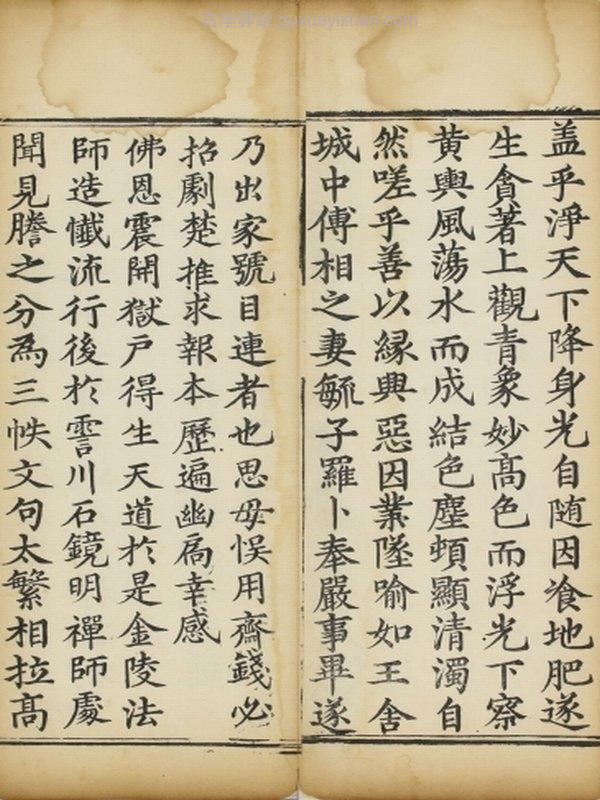 盖乎淨天下降身光自随因飡地肥遂
生貪著上觀青象妙髙色而浮光下察
黄輿風蕩水而成結色塵頓顯清濁自
然嗟乎善以縁興惡因業墜喻如王舍
城中傅相之妻毓子羅卜奉嚴事畢遂
乃出家號目連者也思母悞用齋錢必
招劇楚推求報本歷遍幽扃幸感
佛恩震開獄戸得生天道扵是金陵法
師造懺流行後扵霅川石鏡明禪師處
聞見謄之分為三帙文句太繁相拉髙